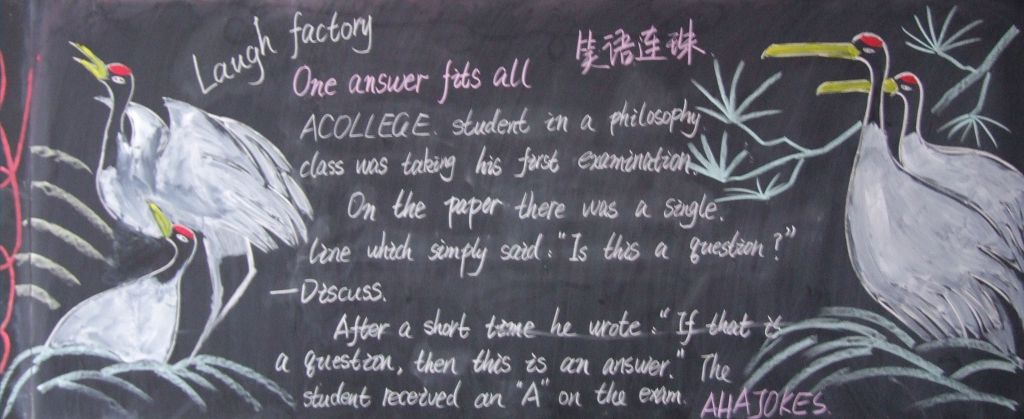 Laugh factory
笑语连珠
One answer fits all
ACOLLEGE. student in a philosophy
class was taking his first examination.
On the paper there was a single.
line which simply said: "Is this a question?"
—Discuss.
After a short time he wrote: "If that is
a question, then this is an answer." The
student received an "A" on the exam.
AHAJOKES.